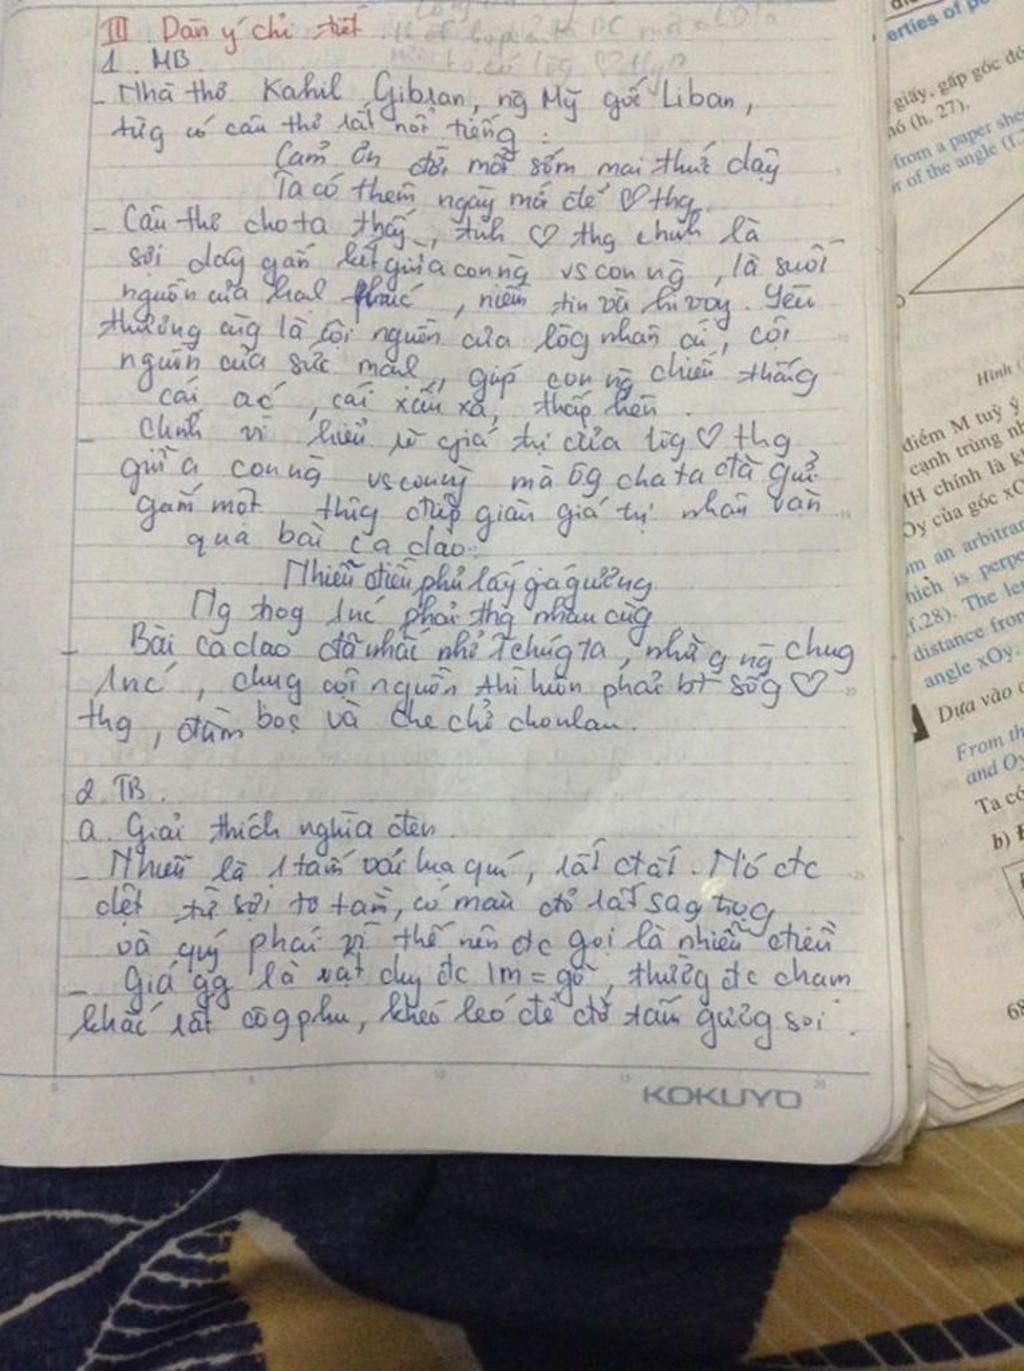 III Dàn ý chi tiết.
1. MB.
- Nhà thơ Kahil Gibran, ng Mỹ gốc Liban,
từg có câu thơ rất nổi tiếng:
Cảm ơn đời mỗi sớm mai thức dậy
Ta có thêm ngày mới để ♡ thg.
- Câu thơ cho ta thấy, tình ♡ thg chính là
sợi dây gắn kết giữa con ng vs con ng, là suối
nguồn của hạh phúc, niềm tin và hi vọg. Yêu
thương cũg là cội nguồn của lòg nhân ái, cội
nguồn của sức mạh, giúp con ng chiến thắng
cái ác, cái xấu xa, thấp hèn.
- Chính vì hiểu rõ giá trị của lòg ♡ thg
giữa con ng vs con ng mà ôg cha ta đã gửi
gắm một thôg điệp giàu giá trị nhân văn
qua bài ca dao:
Nhiễu điều phủ lấy giá gương
Ng trog 1 nc phải thg nhau cùg
- Bài ca dao đã nhắc nhở chúg ta, nhữg ng chug
1 nc, chug cội nguồn thì luôn phải bt sốg ♡
thg, đùm bọc và che chở cho nhau.
2. TB.
a. Giải thích nghĩa đen.
- Nhiễu là 1 tấm vải lụa quý, rất đắt. Nó đc
dệt từ sợi tơ tằm, có màu đỏ rất sag trọg
và quý phái vì thế nên đc gọi là nhiễu điều
- Giá gg là vật dụg đc lm = gỗ, thườg đc chạm
khắc rất côg phu, khéo léo để đỡ tấm gươg soi.
KOKUYO
erties of
giấy, gấp góc
(h. 27).
from a paper
of the angle
Hình
điểm M tuỳ ý
cạnh trùng
MH chính là
Oy của góc
an arbitrar
hich is
f.28). The
distance from
angle xOy.
Dựa vào
From
and
Ta có
b)
68